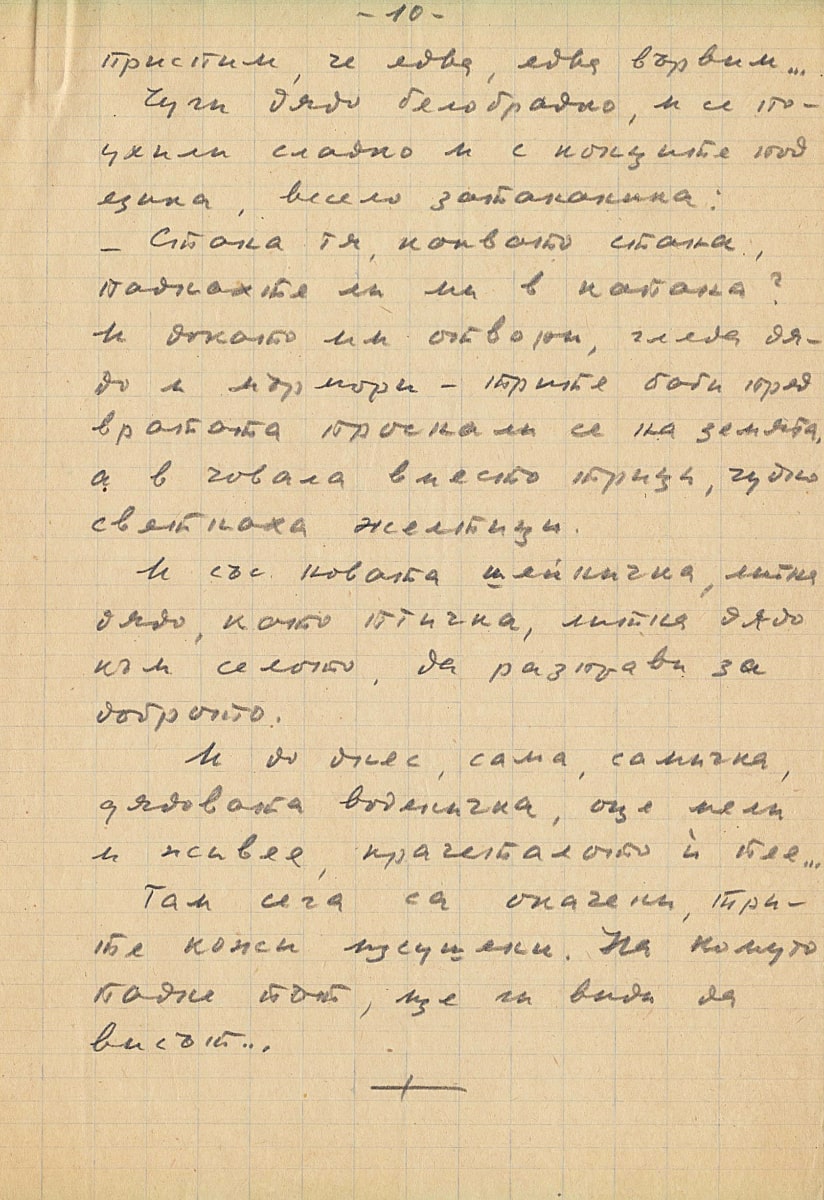 - 10 -
пристим, че едва, едва вървим...
Чучи дядо белобрадко, и се по-
ухили сладко и с конците под
езика, весело затананика:
- Стана тя, каквато стана,
паднахте ли ми в капана?
И докато им отвори, гледа дя-
до и мърмори - трите баби пред
вратата проснали се на земята,
а в човала вместо трици, чудно
светнаха желтици.
И със новата шейничка, литна
дядо, като птичка, литна дядо
към селото, да разправи за
доброто.
И до днес, сама, самичка,
дядовата воденичка, още мели
и живее, крачеталото ѝ пее...
Там сега са окачени, три-
те кожи изсушени. На комуто
падне път, ще ги види да
висът...